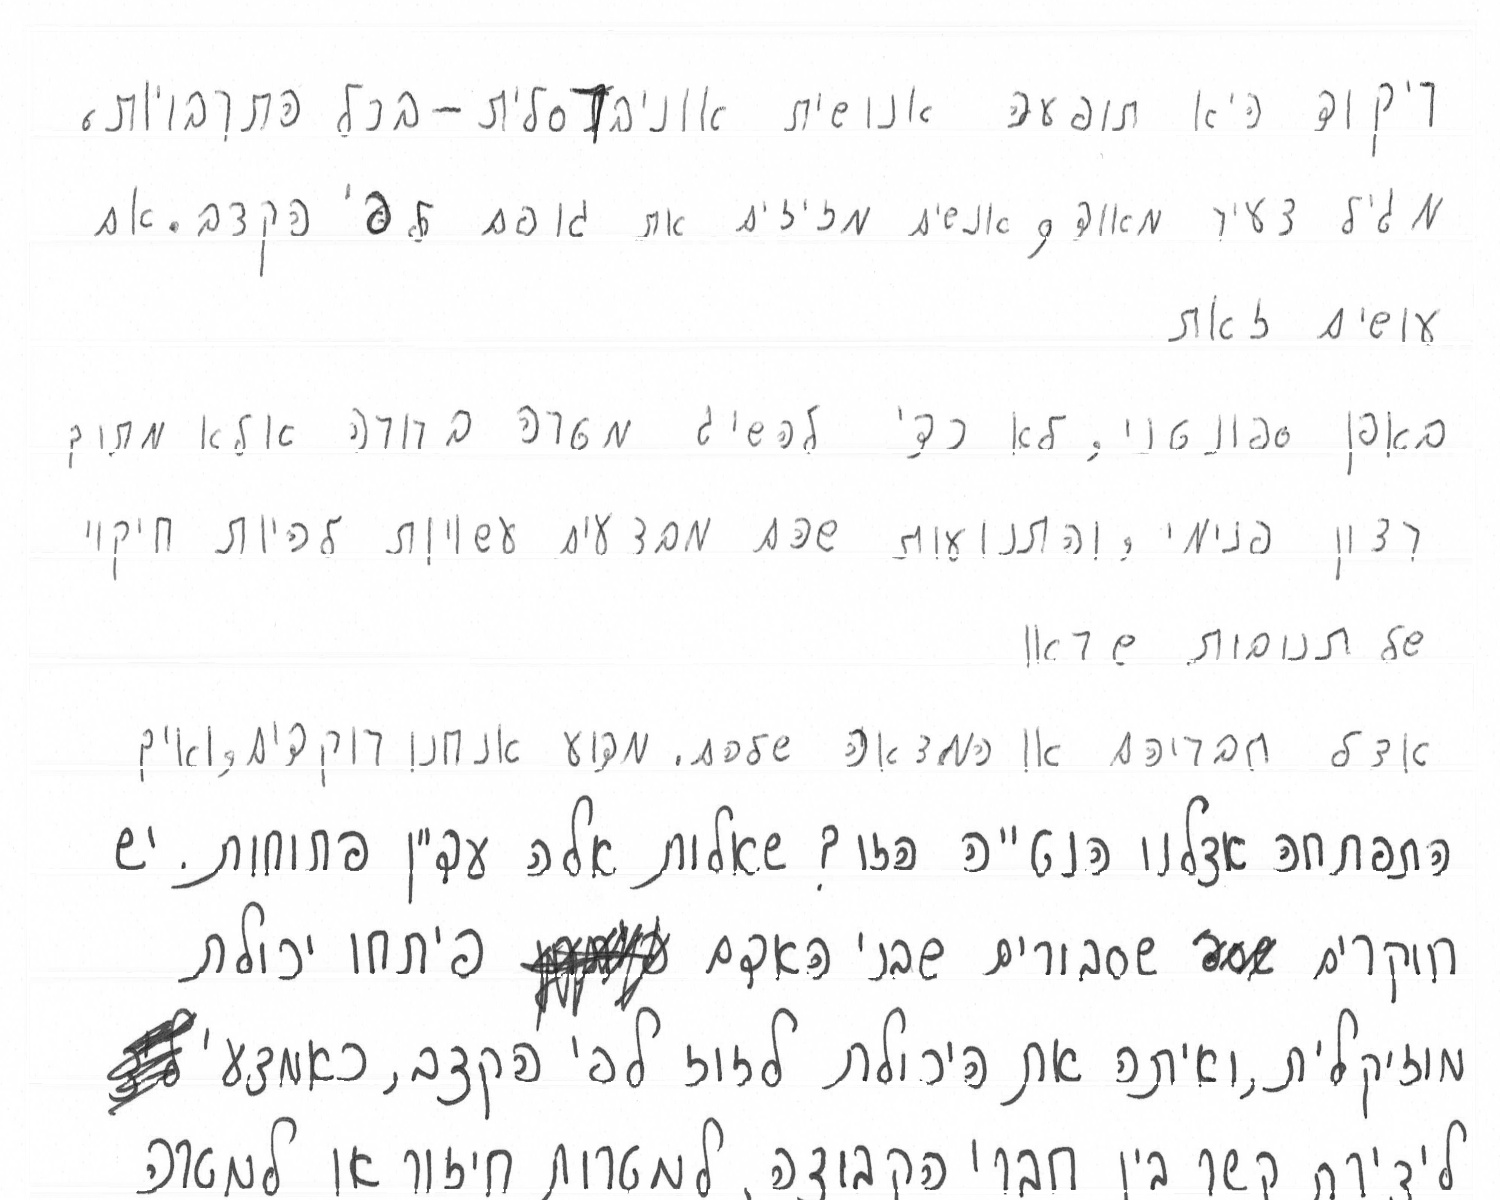 ריקוד היא תופעה אנושית אוניברסלית - בכל התרבויות,
מגיל צעיר מאוד, אנשים מזיזים את גופם לפי הקצב. אם
עושים זאת
באופן ספונטני, לא כדי להשיג מטרה ברורה אולא מתוך
רצון פנימי, והתנועות שהם מבצעים עשויות להיות חיקוי
של תנובות שראו
אצל חבריהם או המצאה שלהם. מדוע אנחנו רוקדים, ואיך
התפתחה אצלנו הנטייה הזו? שאלות אלה עדיין פתוחות. יש
חוקרים שסבורים שבני האדם פיתחו יכולת
מוזיקלית, ואיתה את היכולת לזוז לפי הקצב, כאמצעי
ליצירת קשר בין חברי הקבוצה, למטרות חיזור או למטרה